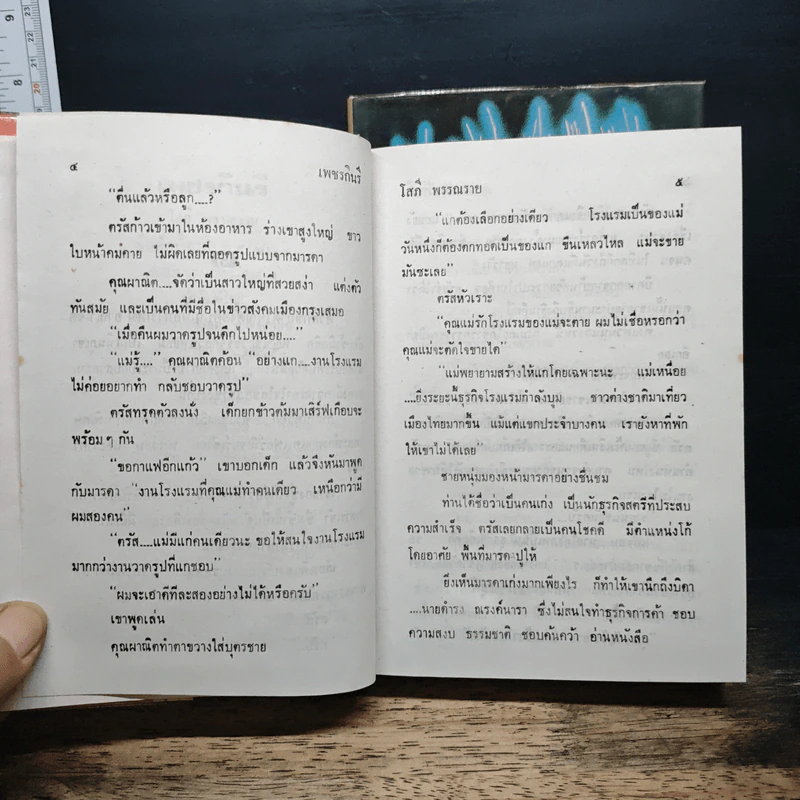 ๔ เพชรกินรี
“ตื่นแล้วหรือลูก....?”
ตรัสก้าวเข้ามาในห้องอาหาร ร่างเขาสูงใหญ่ ขาว
ใบหน้าคมคาย ไม่ผิดเลยที่ถอดรูปแบบจากมารดา
คุณผาณิต....จัดว่าเป็นสาวใหญ่ที่สวยสง่า แต่งตัว
ทันสมัย และเป็นคนที่มีชื่อในข่าวสังคมเมืองกรุงเสมอ
“เมื่อคืนผมวาดรูปจนดึกไปหน่อย....”
“แม่รู้....” คุณผาณิตค้อน “อย่างแก....งานโรงแรม
ไม่ค่อยอยากทำ กลับชอบวาดรูป”
ตรัสทรุดตัวลงนั่ง เด็กยกข้าวต้มมาเสิร์ฟเกือบจะ
พร้อมๆ กัน
“ขอกาแฟอีกแก้ว” เขาบอกเด็ก แล้วจึงหันมาพูด
กับมารดา “งานโรงแรมที่คุณแม่ทำคนเดียว เหนือกว่ามี
ผมสองคน”
“ตรัส....แม่มีแกคนเดียวนะ ขอให้สนใจงานโรงแรม
มากกว่างานวาดรูปที่แกชอบ”
“ผมจะเอาดีทีละสองอย่างไม่ได้หรือครับ”
เขาพูดเล่น
คุณผาณิตทำตาขวางใส่บุตรชาย
โสภี พรรณราย ๕
“แกต้องเลือกอย่างเดียว โรงแรมเป็นของแม่
วันหนึ่งก็ต้องตกทอดเป็นของแก ขืนเหลวไหล แม่จะขาย
มันซะเลย”
ตรัสหัวเราะ
“คุณแม่รักโรงแรมของแม่จะตาย ผมไม่เชื่อหรอกว่า
คุณแม่จะตัดใจขายได้”
“แม่พยายามสร้างให้แกโดยเฉพาะนะ แม่เหนื่อย
....ยิ่งระยะนี้ธุรกิจโรงแรมกำลังบูม ชาวต่างชาติมาเที่ยว
เมืองไทยมากขึ้น แม้แต่แขกประจำบางคน เรายังหาที่พัก
ให้เขาไม่ได้เลย”
ชายหนุ่มมองหน้ามารดาอย่างชื่นชม
ท่านได้ชื่อว่าเป็นคนเก่ง เป็นนักธุรกิจสตรีที่ประสบ
ความสำเร็จ ตรัสเลยกลายเป็นคนโชคดี มีตำแหน่งโก้
โดยอาศัย พื้นที่มารดาปูให้
ยิ่งเห็นมารดาเก่งมากเพียงไร ก็ทำให้เขานึกถึงบิดา
....นายดำรง ณรงค์นารา ซึ่งไม่สนใจทำธุรกิจการค้า ชอบ
ความสงบ ธรรมชาติ ชอบค้นคว้า อ่านหนังสือ